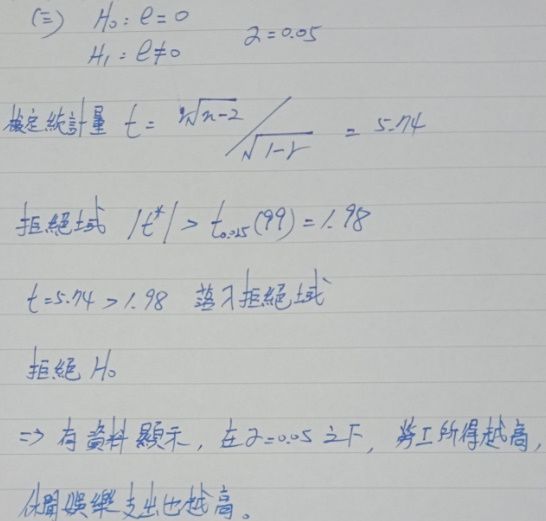 (三) H₀: ρ = 0
H₁: ρ ≠ 0 α = 0.05
檢定統計量 t = r√n-2 / √1-r = 5.74
拒絕域 |t*| > t₀.₀₂₅(99) = 1.98
t = 5.74 > 1.98 落入拒絕域
拒絕 H₀
⇒ 有資料顯示, 在α=0.05之下, 勞工所得越高,
休閒娛樂支出也越高。